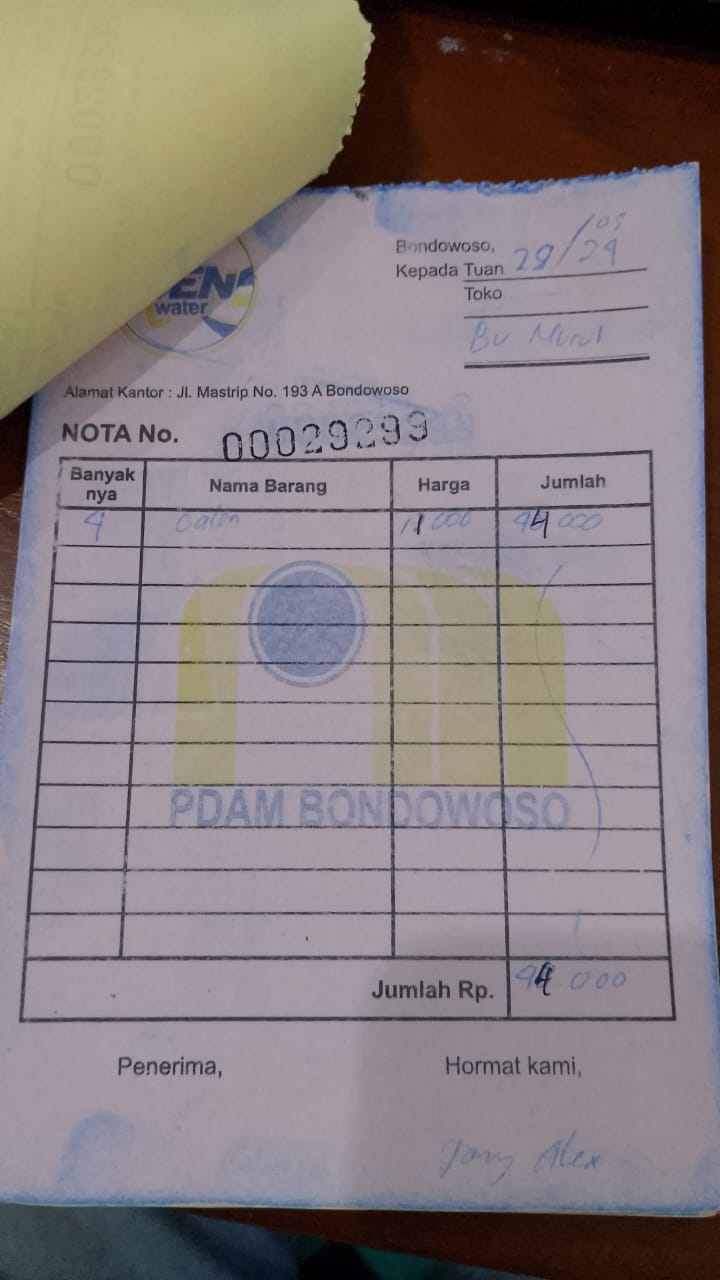 EN
water
Bondowoso,
Kepada Tuan
28/05
24
Toko
Bu Nurul
Alamat Kantor : Jl. Mastrip No. 193 A Bondowoso
NOTA No. 00029299
Banyak nya Nama Barang Harga Jumlah
4 Galon 11 000 44 000
PDAM BONDOWOSO
Jumlah Rp. 44 000
Penerima, Hormat kami,
Alex